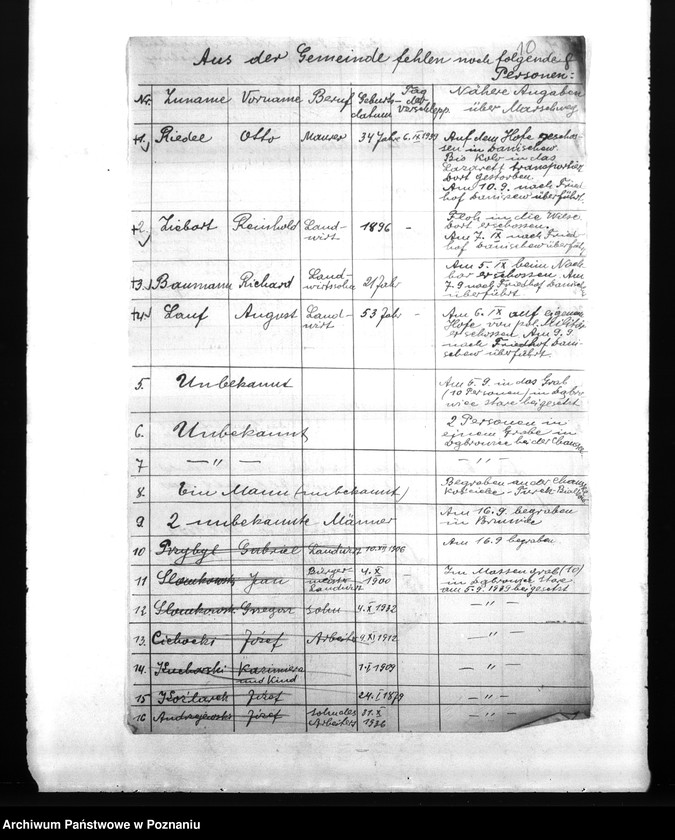 10
Aus der Gemeinde fehlen noch folgende
Personen:
Nr. Zuname Vorname Beruf Geburts-datum Tag der Verschlepp. Nähere Angaben über Marschweg
+1. Riedel Otto Maurer 34 Jahr 6. IX 1939 Auf dem Hofe geschos-
sen in Danischew.
Bis Kolo in das
Lazarett transportier
Dort gestorben.
Am 10.9. nach Fried-
hof Danischew überführt.
+2. Ziebart Reinhold Land-wirt 1896 - Floh in die Wiese
Dort erschossen.
Am 7. IX nach Fried-
hof Danischew überführt
+3. Baumann Richard Land-wirtssohn 21 Jahr Am 5. IX beim Nach-
bar erschossen. Am
7.9 nach Friedhof Danisch
überführt.
+4. Lauf August Land-wirt 53 Jahr - Am 6. IX auf eigenen
Hofe von pol. Militär
erschossen. Am 9.9.
nach Friedhof Dani-
schew überführt.
5. Unbekannt Am 5.9. in das Grab
(10 Personen) in Dąbro
wice stare beigesetzt
6. Unbekannt 2 Personen in
einem Grabe in
Dąbrowice bei der Chaussee
7 — " —
8. Ein Mann (unbekannt) Begraben an der Chaussee
Kościelec - Turek
9. 2 unbekannte Männer Am 16.9. begraben
in
10 Przybył Gabriel Landwirt 10. XII 1906 Am 16.9 begraben
11 Słomkowski Jan Bürger-meister Landwirt 4. X 1900 Im Massengrab (10)
in Dąbrowice stare
am 5.9.1939 beigesetzt
12. Słomkowski Gregor Sohn 4. X 1932 — " —
13. Cichocki Józef Arbeiter 4. XI 1912 — " —
14. Kuchowski Kazimiera und Kind 1. I 1909 — " —
15 Józef 24. I 1879 — " —
16 Andrzejewski Józef Sohn des Arbeiters 31. X 1926 — " —
Archiwum Państwowe w Poznaniu